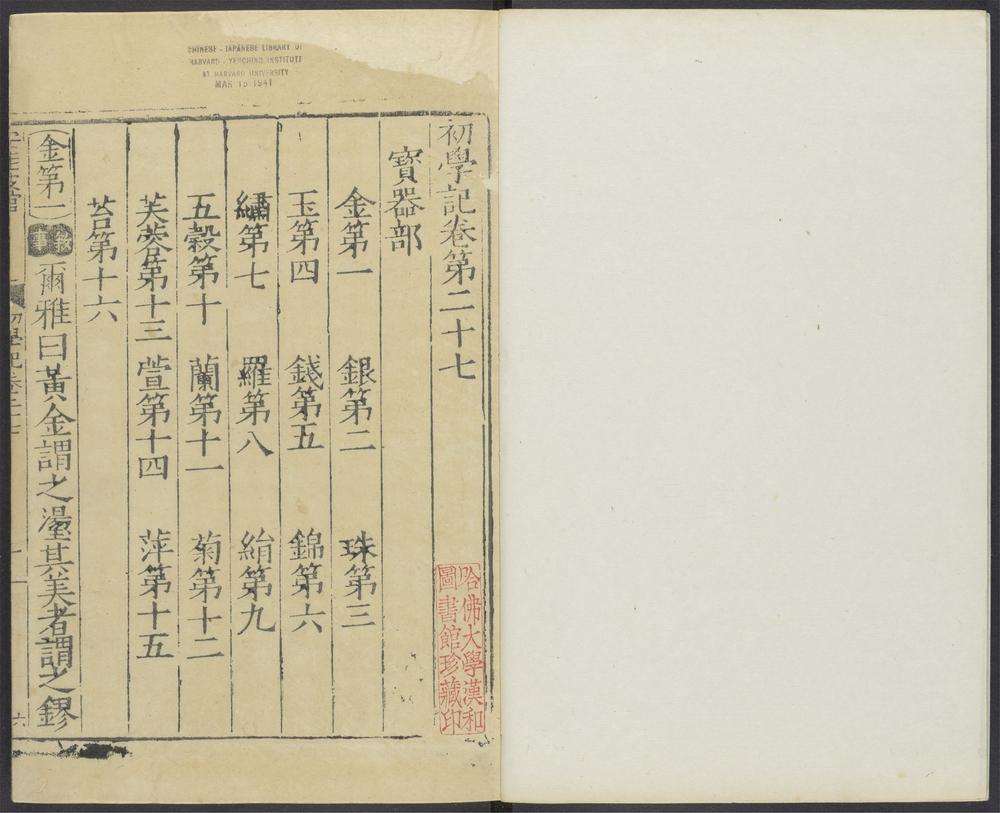 CHINESE - JAPANESE LIBRARY OF
HARVARD - YENCHING INSTITUTE
AT HARVARD UNIVERSITY
MAR 15 1941
初學記卷第二十七
寶器部
金第一 銀第二 珠第三
玉第四 錢第五 錦第六
繡第七 羅第八 絹第九
五穀第十 蘭第十一 菊第十二
芙蓉第十三 萱第十四 萍第十五
苔第十六
金第一 敘事 爾雅曰黃金謂之璗其美者謂之鏐
初學記卷二十七
哈佛大學漢和
圖書館珍藏印